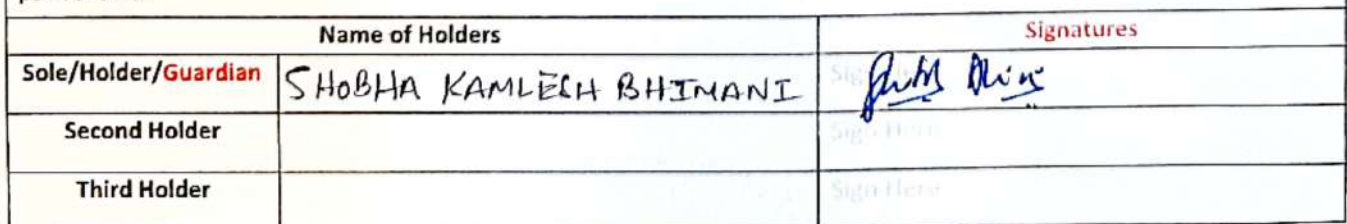 Name of Holders Signatures
Sole/Holder/Guardian SHOBHA KAMLESH BHIMANI Sign
Second Holder Sign Here
Third Holder Sign Here